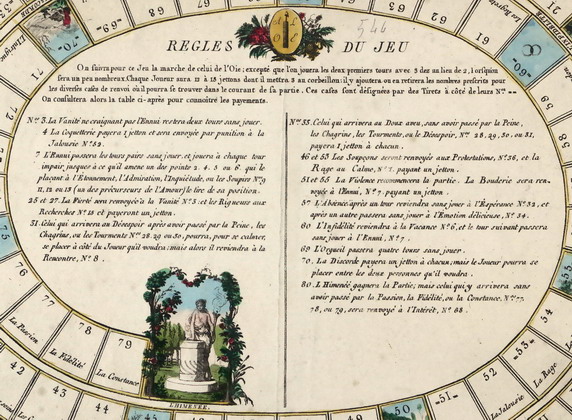 546
REGLES DU JEU
On suivra pour ce Jeu la marche de celui de l'Oie; excepté que l'on jouera les deux premiers tours avec 3 dez au lieu de 2, lorsqu'on
sera un peu nombreux. Chaque Joueur aura 12 à 18 jettons dont il mettra 3 au corbeillon: il y ajoutera, ou en retirera les nombres prescrits pour
les diverses cases de renvoi où il pourra se trouver dans le courant de sa partie. Ces cases sont désignées par des Tirets à côté de leurs Nos —
On consultera alors la table ci-après pour connoître les payements.
Nos 3. La Vanité ne craignant pas l'Ennui restera deux tours sans jouer.
4 La Coquetterie payera 1 jetton et sera envoyée par punition à la
Jalousie Nº 52.
7 L'Ennui passera les tours pairs sans jouer, et jouera à chaque tour
impair jusques à ce qu'il amene un des points 2. 4. 5 ou 6. qui le
plaçant à l'Etonnement, l'Admiration, l'Inquiétude, ou les Soupirs Nos 9
11, 12 ou 13 (un des précurseurs de l'Amour) le tire de sa position.
25 et 27. La Fierté sera renvoyée à la Vanité Nº 3; et les Rigueurs aux
Recherches Nº 18 et payeront un jetton.
31. Celui qui arrivera au Désespoir après avoir passé par la Peine, les
Chagrins, ou les Tourments Nos 28. 29 ou 30, pourra, pour se calmer,
se placer à côté du Joueur qu'il voudra: mais alors il reviendra à la
Rencontre, Nº 8.
Nos 35. Celui qui arrivera au Doux aveu, sans avoir passé par la Peine,
les Chagrins, les Tourments, ou le Désespoir, Nos 28, 29, 30, ou 31,
payera 1 jetton à chacun.
46 et 53 Les Soupçons seront renvoyés aux Protestations, Nº 36, et la
Rage au Calme, Nº 1. payant un jetton.
51 et 55 La Violence recommencera la partie. La Bouderie sera ren-
voyée à l'Ennui, Nº 7. payant un jetton.
57 L'Absence après un tour reviendra sans jouer à l'Espérance Nº 32, et
après un autre passera sans jouer à l'Emotion délicieuse, Nº 34.
60 L'Infidélité reviendra à la Vacance Nº 6, et le tour suivant passera
sans jouer à l'Ennui, Nº 7.
69 L'Orgueil passera quatre tours sans jouer.
70. La Discorde payera un jetton à chacun; mais le Joueur pourra se
placer entre les deux personnes qu'il voudra.
80. L'Himenée gagnera la Partie; mais celui qui y arrivera sans
avoir passé par la Passion, la Fidélité, ou la Constance. Nos 77.
78, ou 79, sera renvoyé à l'Intérêt, Nº 68.
L'HIMENÉE.
77
78
79
La Passion
La Fidélité
La Constance
42
43
44
45
50
-51-
52
-53-
54
La Jalousie
La Rage
-60-
61
62
63
64
65
66
67
68
-70-